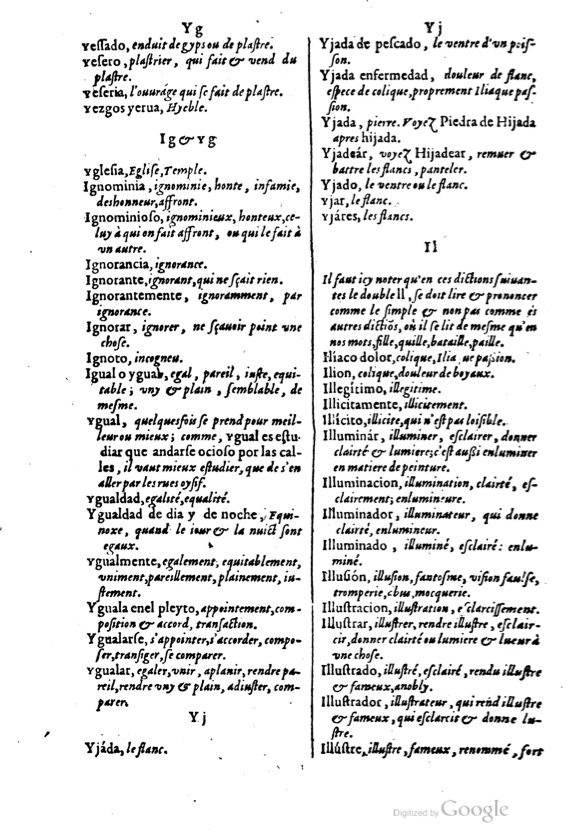 Yg
Yessado, enduit de gyps ou de plastre.
Yesero, plastrier, qui fait & vend du
plastre.
Yeseria, l'ouurage qui se fait de plastre.
Yezgos yerua, Hyeble.
Ig & yg
Yglesia, Eglise, Temple.
Ignominia, ignominie, honte, infamie,
deshonneur, affront.
Ignominioso, ignominieux, honteux, ce-
luy à qui on fait affront, ou qui le fait à
vn autre.
Ignorancia, ignorance.
Ignorante, ignorant, qui ne sçait rien.
Ignorantemente, ignoramment, par
ignorance.
Ignorar, ignorer, ne sçauoir point vne
chose.
Ignoto, incogneu.
Igual o ygual, egal, pareil, iuste, equi-
table; vny & plain, semblable, de
mesme.
Ygual, quelquesfois se prend pour meil-
leur ou mieux; comme, Ygual es estu-
diar que andarse ocioso por las cal-
les, il vaut mieux estudier, que de s'en
aller par les rues oysif.
Ygualdad, egalité, equalité.
Ygualdad de dia y de noche, Equi-
noxe, quand le iour & la nuict sont
egaux.
Ygualmente, egalement, equitablement,
vniment, pareillement, plainement, iu-
stement.
Yguala en el pleyto, appointement, com-
position & accord, transaction.
Ygualarse, s'appointer, s'accorder, compo-
ser, transiger, se comparer.
Ygualar, egaler, vnir, aplanir, rendre pa-
reil, rendre vny & plain, adiuster, com-
parer.
Yj
Yjáda, le flanc.
Yj
Yjada de pescado, le ventre d'vn pois-
son.
Yjada enfermedad, douleur de flanc,
espece de colique, proprement Iliaque pas-
sion.
Yjada, pierre. Voyez Piedra de Hijada
apres hijada.
Yjadeár, voyez Hijadear, remuer &
battre les flancs, panteler.
Yjado, le ventre ou le flanc.
Yjar, le flanc.
Yjáres, les flancs.
Il
Il faut icy noter qu'en ces dictions suiuan-
tes le double ll, se doit lire & prononcer
comme le simple & non pas comme és
autres dictiõs, où il se lit de mesme qu'en
nos mots, fille, quille, bataille, paille.
Iliaco dolor, colique, Iliaque passion.
Ilion, colique, douleur de boyaux.
Illegítimo, illegitime.
Illicitamente, illicitement.
Illícito, illicite, qui n'est pas loisible.
Illuminár, illuminer, esclairer, donner
clairté & lumiere; c'est aussi enluminer
en matiere de peinture.
Illuminacion, illumination, clairté, es-
clairement; enlumineure.
Illuminador, illuminateur, qui donne
clairté, enlumineur.
Illuminado, illuminé, esclairé: enlu-
miné.
Illusión, illusion, fantosme, vision fausse,
tromperie, abus, mocquerie.
Illustracion, illustration, esclarcissement.
Illustrar, illustrer, rendre illustre, esclair-
cir, donner clairté ou lumiere & lueur à
vne chose.
Illustrado, illustré, esclairé, rendu illustre
& fameux, anobly.
Illustrador, illustrateur, qui rend illustre
& fameux, qui esclarcit & donne lu-
stre.
Illústre, illustre, fameux, renommé, fort
Digitized by Google